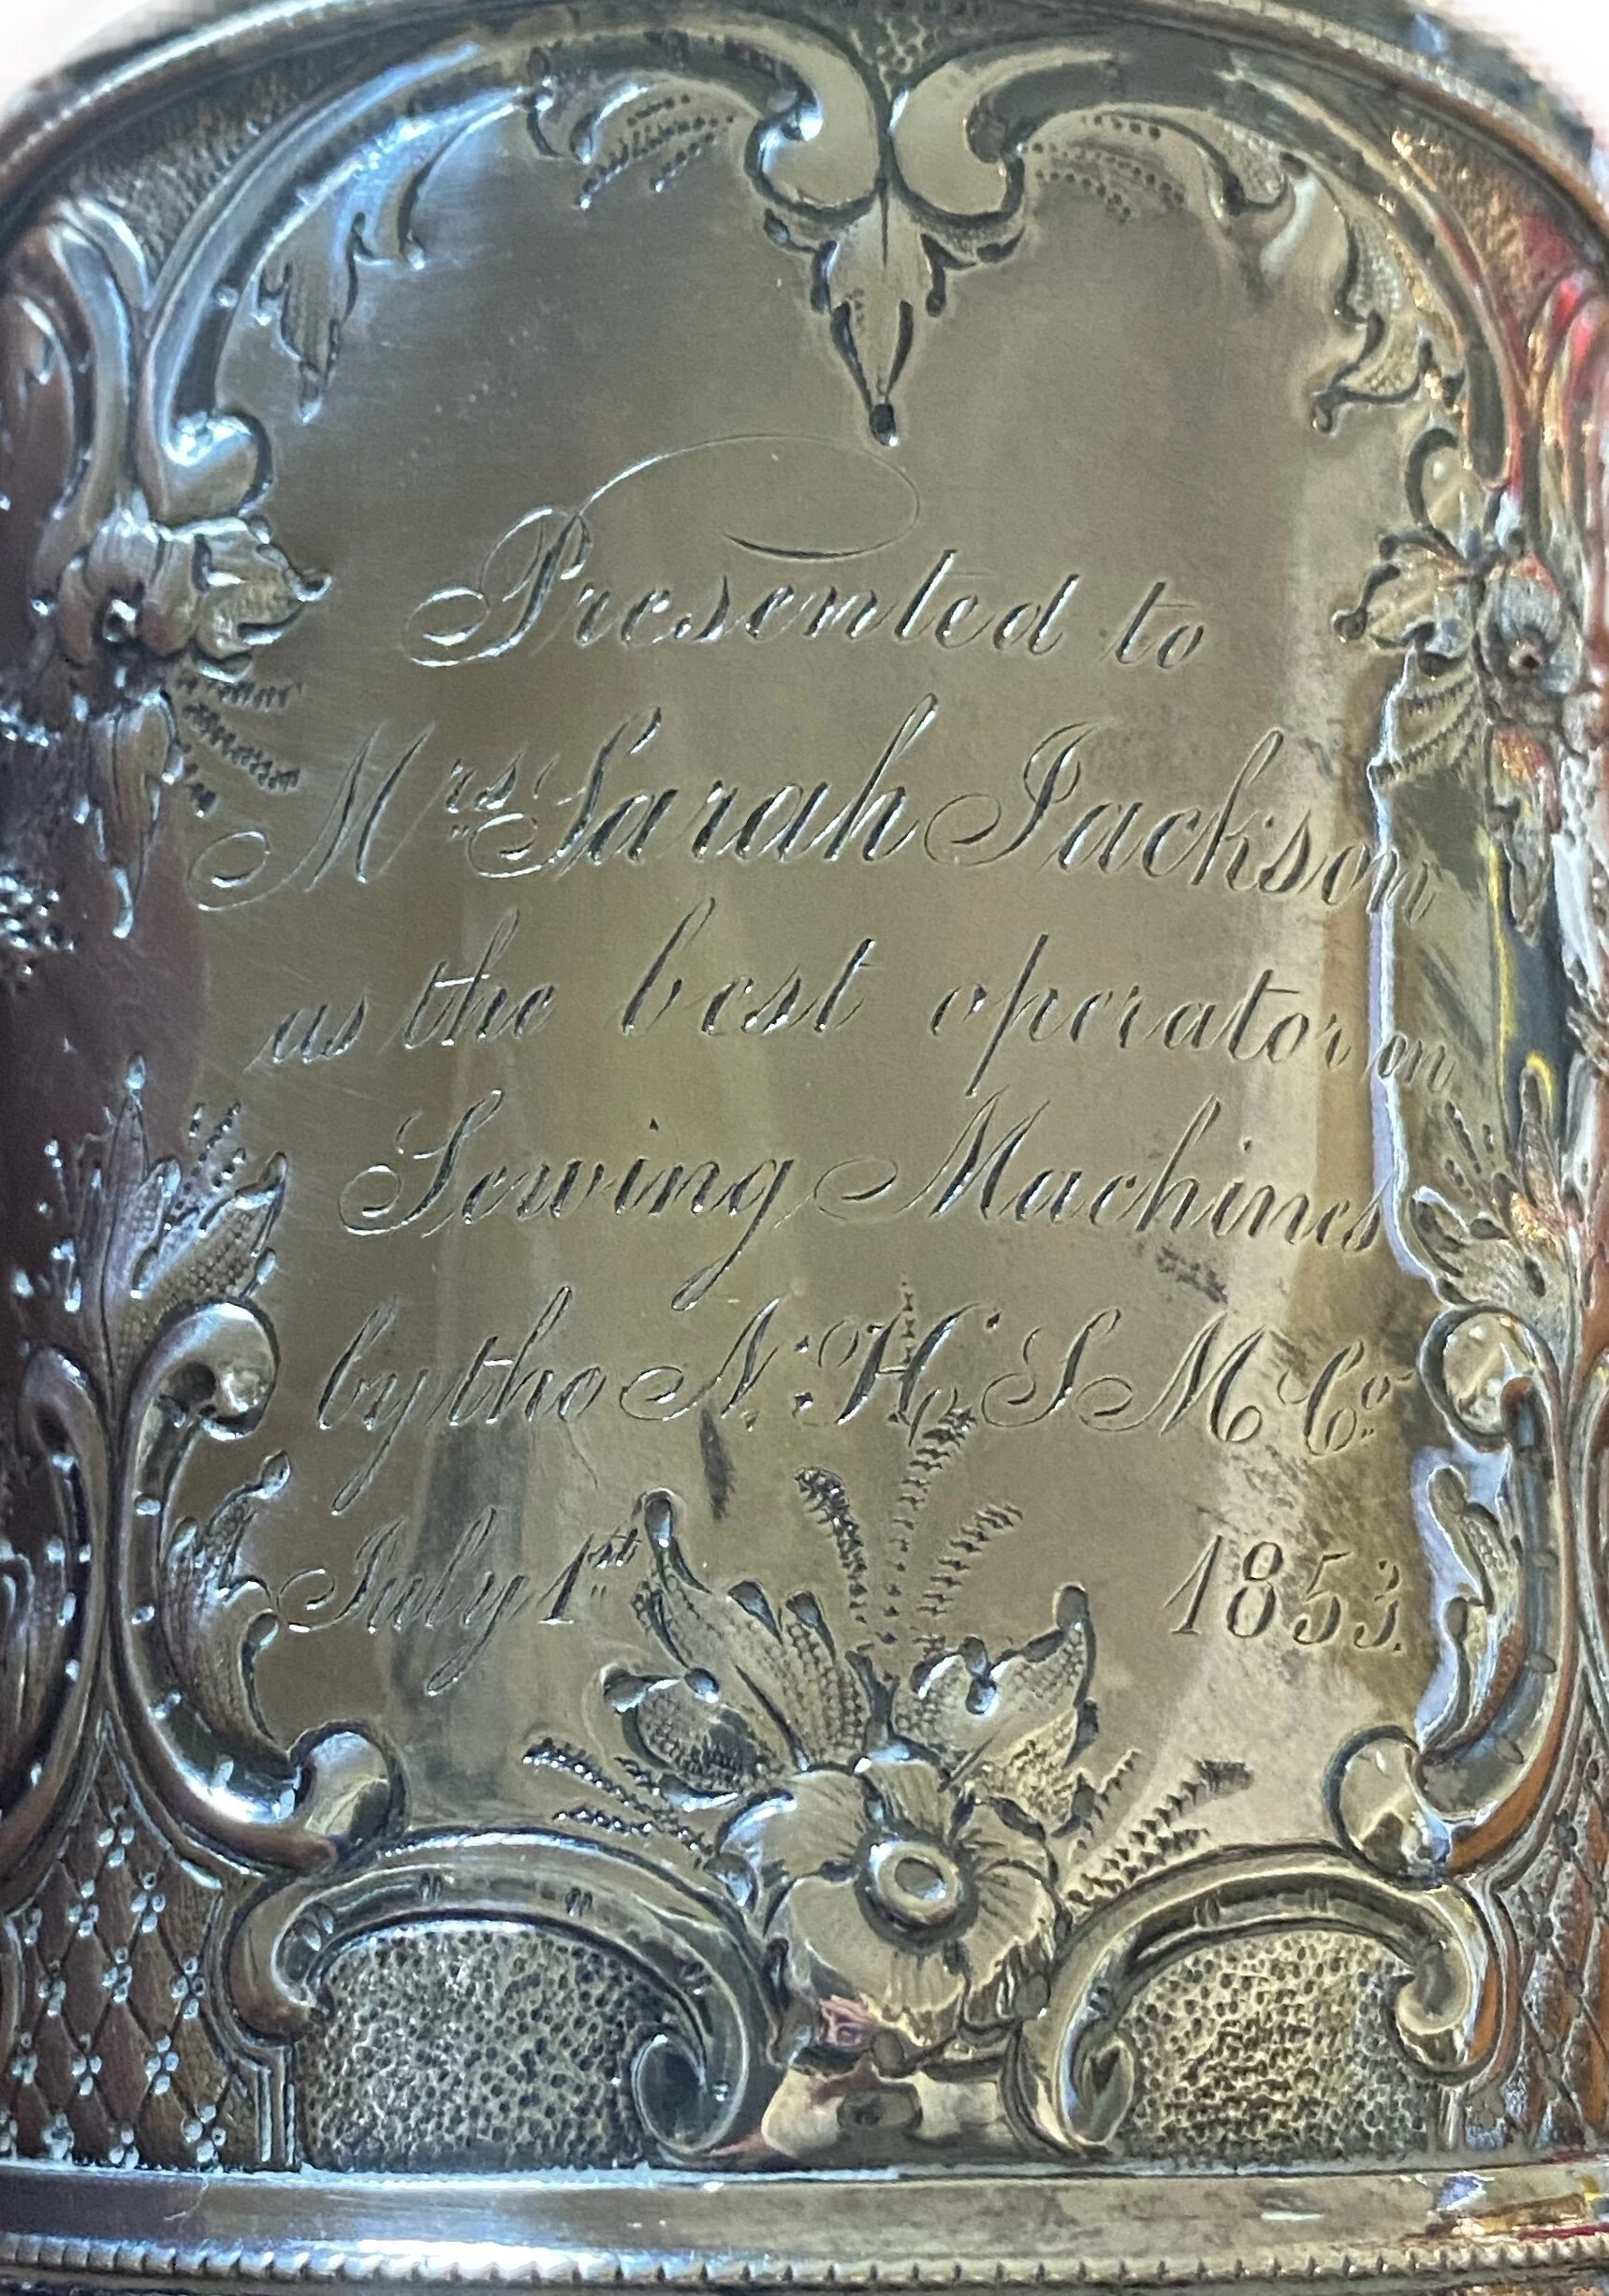 Presented to
Mrs. Sarah Jackson
as the best operator on
Sewing Machines
by the N. H. S M Co.
July 1st 1853.